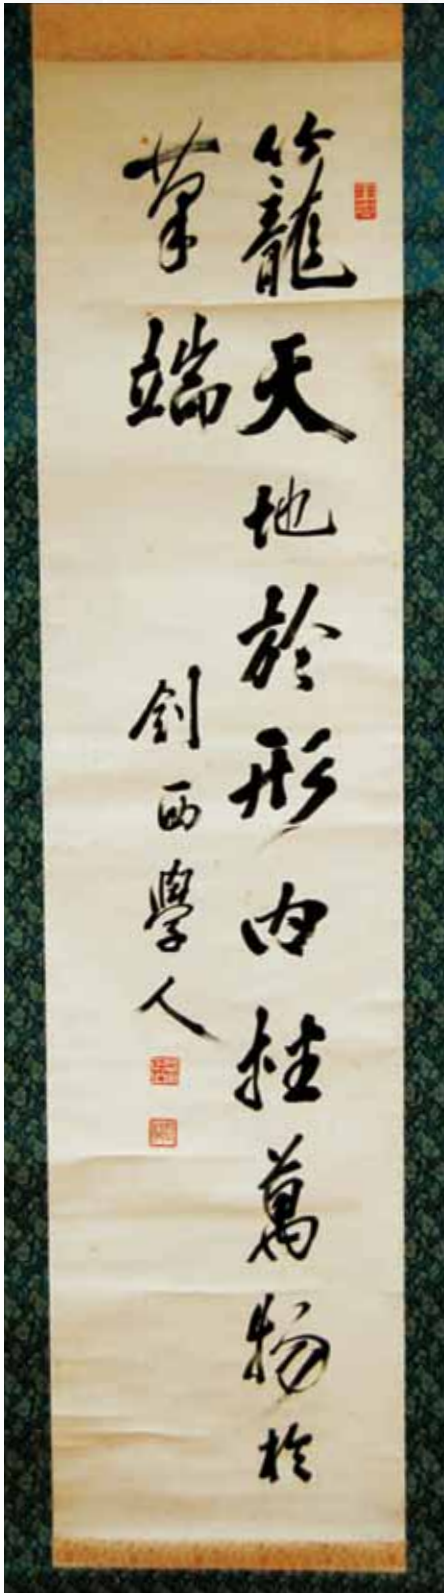 籠天地於形内挫萬物於
筆端
西學人